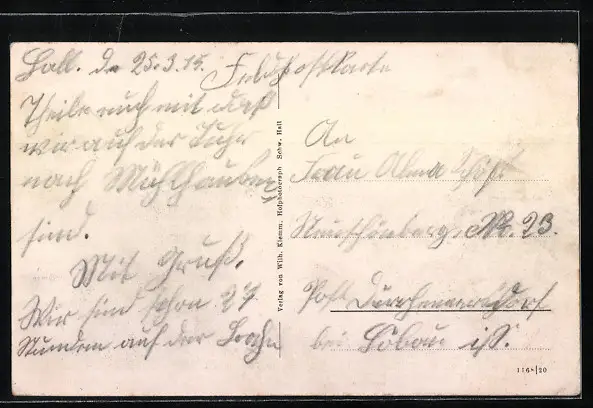 Hall. d. 25.3.15. Feldpostkarte
Theile euch mit daß
wir auf der Fuhr
nach Mühlhausen
sind.
Mit Gruß.
Wir sind schon 27
Stunden auf der Bahn
An
Frau Alma
Neuschönberg, Nr. 23.
Post Dürrhennersdorf
bei Löbau i/S.
Verlag von Wilh. Klemm, Hofphotograph Schw. Hall
1168/20